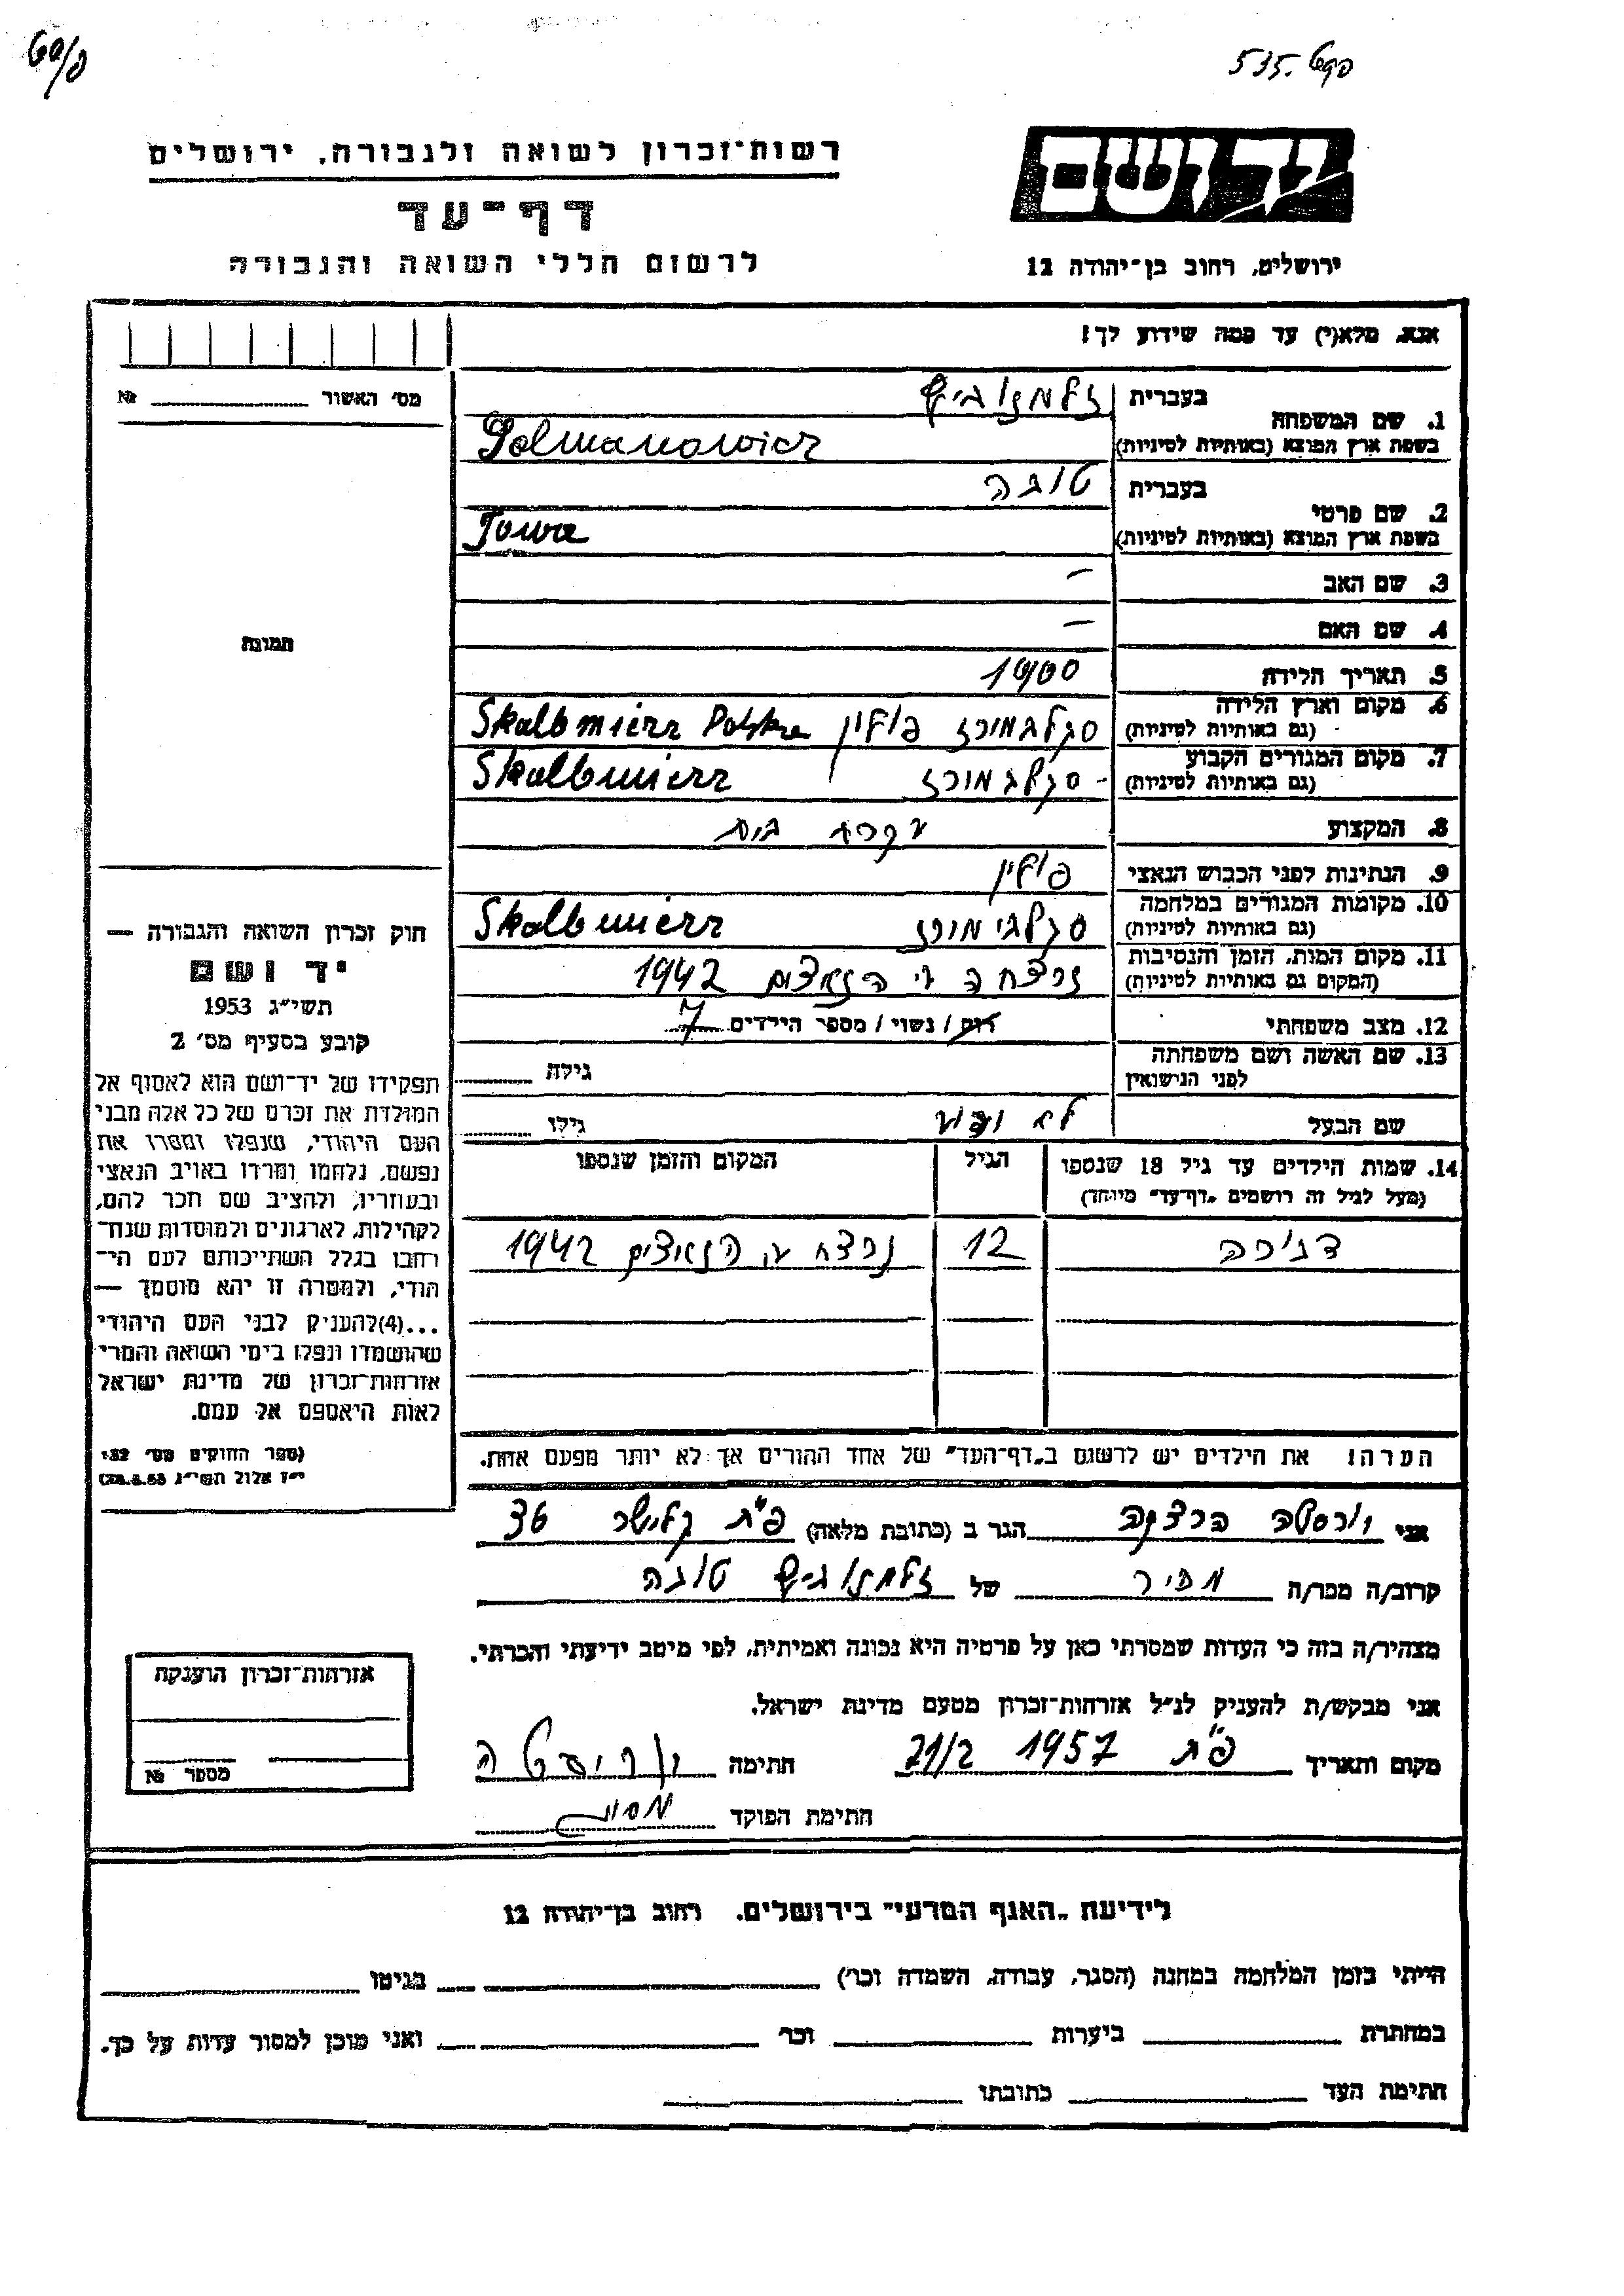 535.
רשות־זכרון לשואה ולגבורה, ירושלים
יד ושם
דף־עד
לרשום חללי השואה והגבורה
ירושלים, רחוב בן־יהודה 12
אנא, מלא(י) עד כמה שידוע לך!
מס׳ האשור № 
1. שם המשפחה
בעברית זלמנוביץ
בשפת ארץ המוצא (באותיות לטיניות) Zelmanowicz
2. שם פרטי
בעברית טובה
בשפת ארץ המוצא (באותיות לטיניות) Towa
3. שם האב —
4. שם האם —
5. תאריך הלידה 1900
6. מקום וארץ הלידה
(גם באותיות לטיניות) סקלבמירז פולין Skalbmierz Polska
7. מקום המגורים הקבוע
(גם באותיות לטיניות) סקלבמירז Skalbmierz
8. המקצוע עקרת בית
9. הנתינות לפני הכבוש הנאצי פולין
10. מקומות המגורים במלחמה
(גם באותיות לטיניות) Skalbmierz
11. מקום המות, הזמן והנסיבות
(המקום גם באותיות לטיניות) נרצחה ע״י הנאצים 1942
12. מצב משפחתי רווק / נשוי / מספר הילדים 7
13. שם האשה ושם משפחתה
לפני הנישואין גילה
שם הבעל לא ידוע גילו
14. שמות הילדים עד גיל 18 שנספו הגיל המקום והזמן שנספו
(מעל לגיל זה רושמים „דף־עד״ מיוחד)
12 נרצח ע״י הנאצים 1942
הערה! את הילדים יש לרשום ב„דף־העד״ של אחד ההורים אך לא יותר מפעם אחת.
תמונה
חוק זכרון השואה והגבורה —
יד ושם
תשי״ג 1953
קובע בסעיף מס׳ 2
תפקידו של יד־ושם הוא לאסוף אל
המולדת את זכרם של כל אלה מבני
העם היהודי, שנפלו ומסרו את
נפשם, נלחמו ומרדו באויב הנאצי
ובעוזריו, ולהציב שם וזכר להם,
לקהילות, לארגונים ולמוסדות שנח־
רבו בגלל השתייכותם לעם הי־
הודי, ולמטרה זו יהא מוסמך —
...(4)להעניק לבני העם היהודי
שהושמדו ונפלו בימי השואה והמרי
אזרחות־זכרון של מדינת ישראל
לאות היאספם אל עמם.
(ספר החוקים מס׳ 132
י״ז אלול תשי״ג 28.8.53)
אני הגר ב (כתובת מלאה) פ״ת קלישר 36
קרוב/ה מכר/ה מכיר של זלמנוביץ טובה
מצהיר/ה בזה כי העדות שמסרתי כאן על פרטיה היא נכונה ואמיתית, לפי מיטב ידיעתי והכרתי.
אני מבקש/ת להעניק לנ״ל אזרחות־זכרון מטעם מדינת ישראל.
מקום ותאריך פ״ת 1957 21/2 חתימה
חתימת הפוקד
אזרחות־זכרון הוענקה
מספר №
לידיעת „האגף המדעי״ בירושלים, רחוב בן־יהודה 12
הייתי בזמן המלחמה במחנה (הסגר, עבודה, השמדה וכו׳) בגיטו
במחתרת ביערות וכו׳ ואני מוכן למסור עדות על כך.
חתימת העד כתובתו